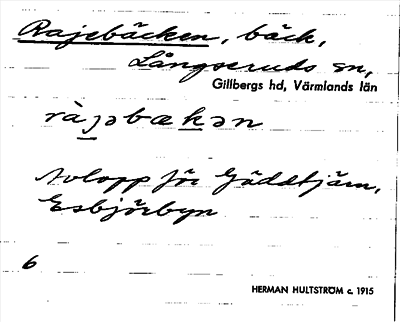 Rajebäcken, bäck,
Långseruds sn,
Gillbergs hd, Värmlands län
ràjəbækən
Avlopp för Gäddtjärn,
Esbjörbyn
6
HERMAN HULTSTRÖM c. 1915